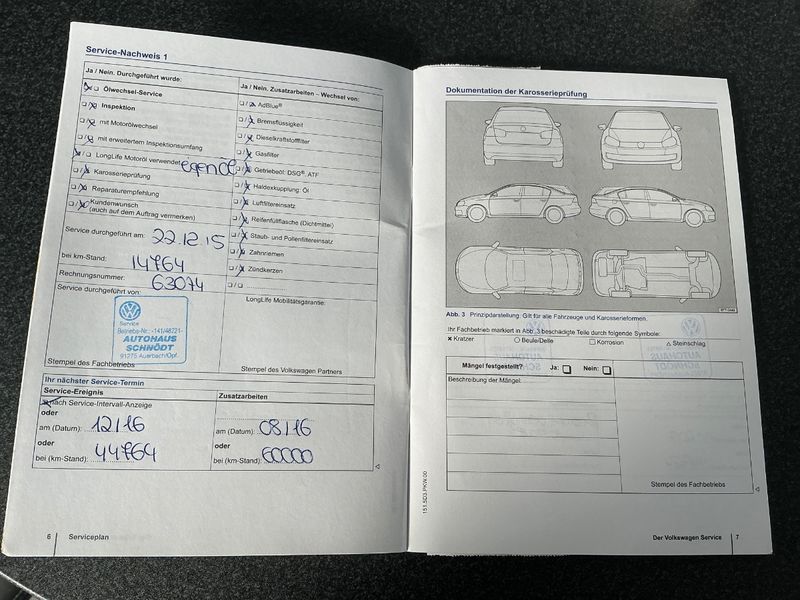 Service-Nachweis 1
Ja / Nein. Durchgeführt wurde:
Ölwechsel-Service
Inspektion
mit Motorölwechsel
mit erweitertem Inspektionsumfang
LongLife Motoröl verwendet
Karosserieprüfung
Reparaturempfehlung
Kundenwunsch
(auch auf dem Auftrag vermerken)
Service durchgeführt am: 22.12.15
bei km-Stand: 14764
Rechnungsnummer: 63074
Service durchgeführt von:
Service
Betriebs-Nr.: -141/48721-
AUTOHAUS
SCHNÖDT
91275 Auerbach/Opf.
Stempel des Fachbetriebs
Ja / Nein. Zusatzarbeiten – Wechsel von:
AdBlue®
Bremsflüssigkeit
Dieselkraftstofffilter
Gasfilter
Getriebeöl: DSG®, ATF
Haldexkupplung: Öl
Luftfiltereinsatz
Reifenfüllflasche (Dichtmittel)
Staub- und Pollenfiltereinsatz
Zahnriemen
Zündkerzen
LongLife Mobilitätsgarantie:
Stempel des Volkswagen Partners
Ihr nächster Service-Termin
Service-Ereignis
nach Service-Intervall-Anzeige
oder
am (Datum): 12/16
oder
bei (km-Stand): 44764
Zusatzarbeiten
am (Datum): 08/16
oder
bei (km-Stand): 60000
6 Serviceplan
Dokumentation der Karosserieprüfung
Abb. 3 Prinzipdarstellung: Gilt für alle Fahrzeuge und Karosserieformen.
Ihr Fachbetrieb markiert in Abb. 3 beschädigte Teile durch folgende Symbole:
Kratzer Beule/Delle Korrosion Steinschlag
Mängel festgestellt? Ja: Nein:
Beschreibung der Mängel:
Stempel des Fachbetriebs
151.5D3.PKW.00
Der Volkswagen Service 7